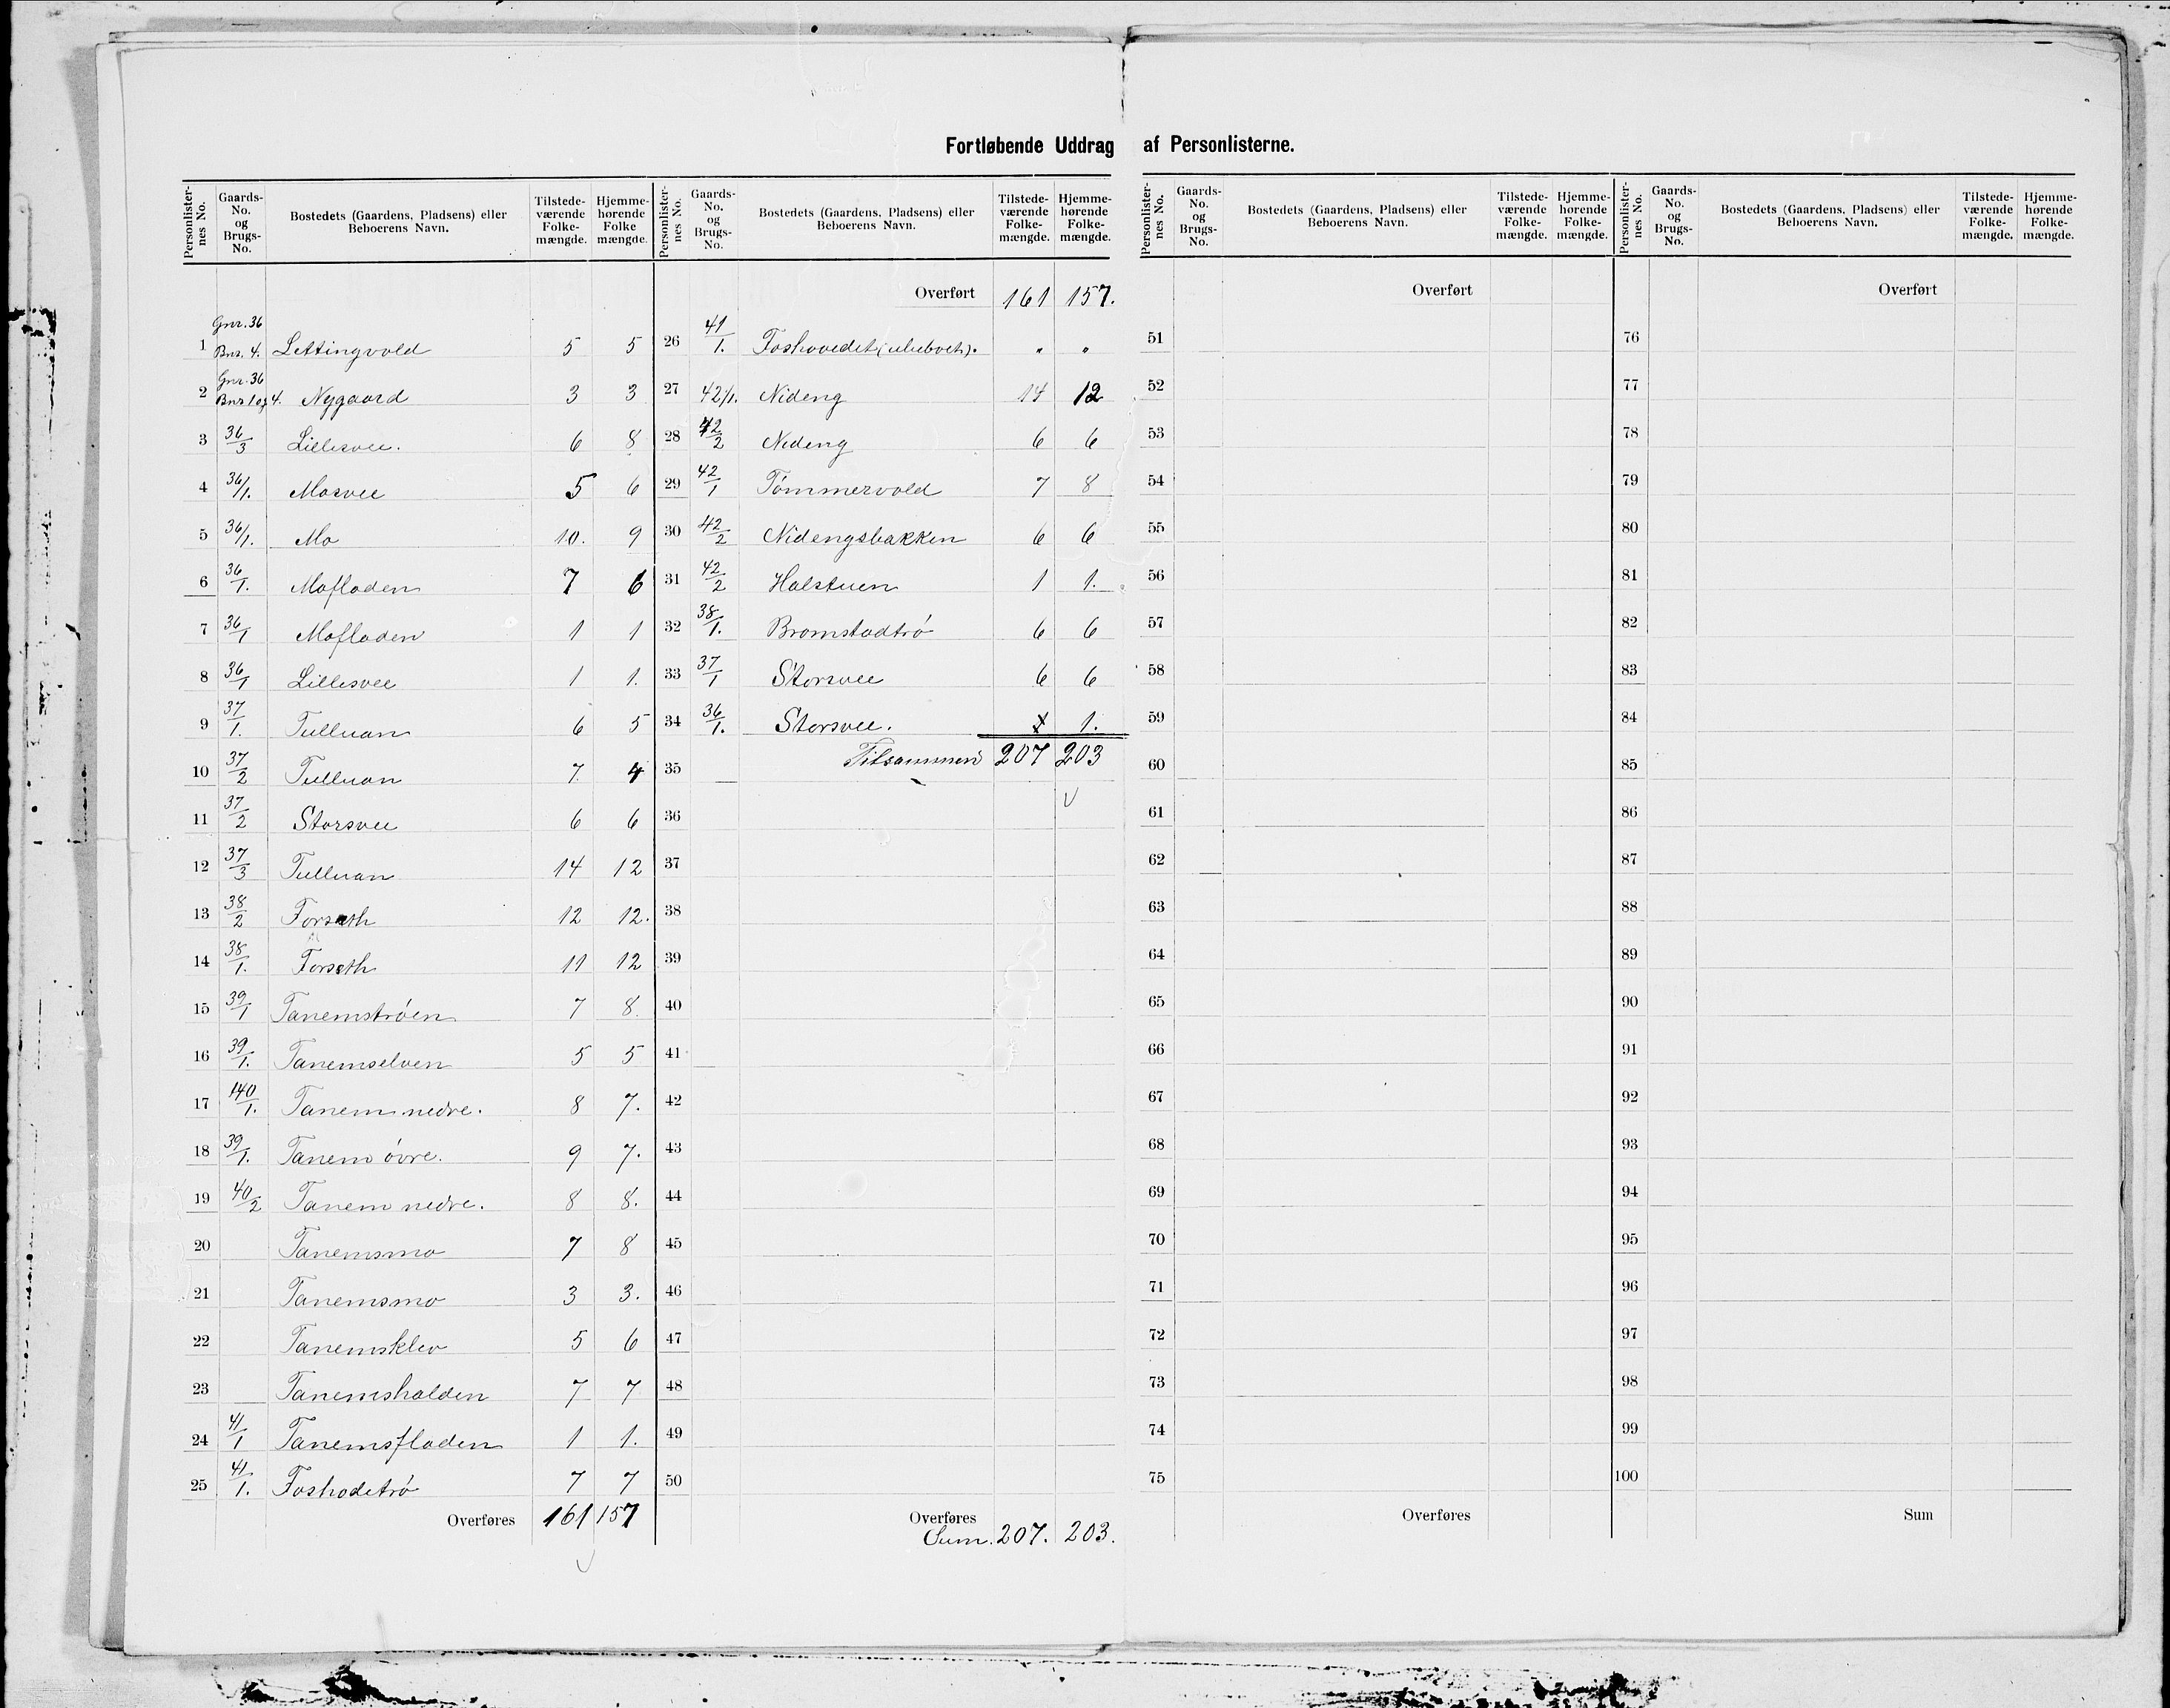 Fortløbende Uddrag af Personlisterne.
Personlisternes No. | Gaards-No. og Brugs-No. | Bostedets (Gaardens, Pladsens) eller Beboerens Navn. | Tilstedeværende Folkemængde. | Hjemmehørende Folkemængde.
1 Gnr. 36 Bnr. 4. Lettingvold 5 5
2 Gnr. 36 Bnr 1 og 4. Nygaard 3 3
3 36/3 Lillesvee. 6 8
4 36/1. Mosvee 5 6
5 36/1. Mo 10. 9
6 36/1. Mofladen 7 6
7 36/1 Mofladen 1 1
8 36/1 Lillesvee 1 1.
9 37/1. Tulluan 6 5
10 37/2 Tulluan 7 4
11 37/2 Storsvee 6 6
12 37/3 Tulluan 14 12
13 38/2 Forseth 12 12.
14 38/1. Forseth 11 12
15 39/1 Tanemstrøen 7 8.
16 39/1. Tanemselven 5 5
17 140/1. Tanem nedre. 8 7.
18 39/1. Tanem øvre. 9 7.
19 40/2 Tanem nedre. 8 8.
20 Tanemsmo 7 8
21 Tanemsmo 3 3.
22 Tanemsklev 5 6
23 Tanemshalden 7 7
24 41/1 Tanemsfladen 1 1.
25 41/1. Foshodetrø 7 7
Overføres 161 157
Personlisternes No. | Gaards-No. og Brugs-No. | Bostedets (Gaardens, Pladsens) eller Beboerens Navn. | Tilstedeværende Folkemængde. | Hjemmehørende Folkemængde.
Overført 161 157.
26 41/1. Foshovedet (ubeboet). " "
27 42/1. Nideng 14 12
28 42/2 Nideng 6 6
29 42/1 Tømmervold 7 8
30 42/2 Nidengsbakken 6 6
31 42/2 Halstuen 1 1.
32 38/1. Bromstadtrø 6 6
33 37/1 Storsvee 6 6
34 36/1. Storsvee. 1.
35 Tilsammen 207 203
36
37
38
39
40
41
42
43
44
45
46
47
48
49
50
Overføres
Sum. 207. 203.
Personlisternes No. | Gaards-No. og Brugs-No. | Bostedets (Gaardens, Pladsens) eller Beboerens Navn. | Tilstedeværende Folkemængde. | Hjemmehørende Folkemængde.
Overført
51
52
53
54
55
56
57
58
59
60
61
62
63
64
65
66
67
68
69
70
71
72
73
74
75
Overføres
Personlisternes No. | Gaards-No. og Brugs-No. | Bostedets (Gaardens, Pladsens) eller Beboerens Navn. | Tilstedeværende Folkemængde. | Hjemmehørende Folkemængde.
Overført
76
77
78
79
80
81
82
83
84
85
86
87
88
89
90
91
92
93
94
95
96
97
98
99
100
Sum